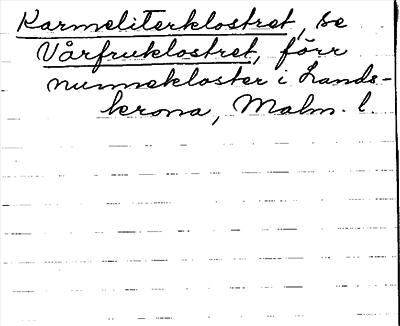 Karmeliterklostret, se
Vårfruklostret, förr
nunnekloster i Lands-
krona, Malm. l.